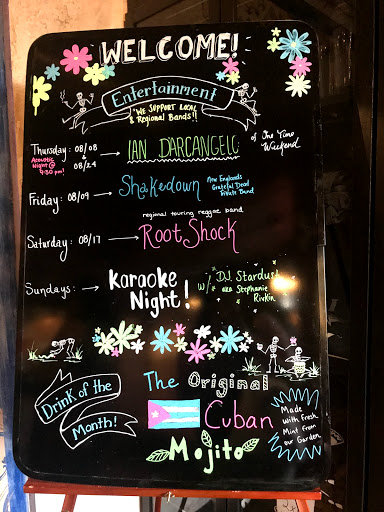 WELCOME!
Entertainment
"WE SUPPORT LOCAL
& Regional Bands!!
Thursday: 08/08 → IAN D'ARCANGELO of One Time Weekend
Acoustic Night @ 9:30 pm!
& 08/24
Friday: 08/09 → Shakedown New Englands Grateful Dead Tribute Band
regional touring reggae band
Saturday: 08/17 → RootShock
Sundays: → Karaoke Night! w/ DJ Stardust aka Stephanie Rivkin
Drink of the Month!
The Original
Cuban
Mojito
Made with Fresh Mint From our Garden